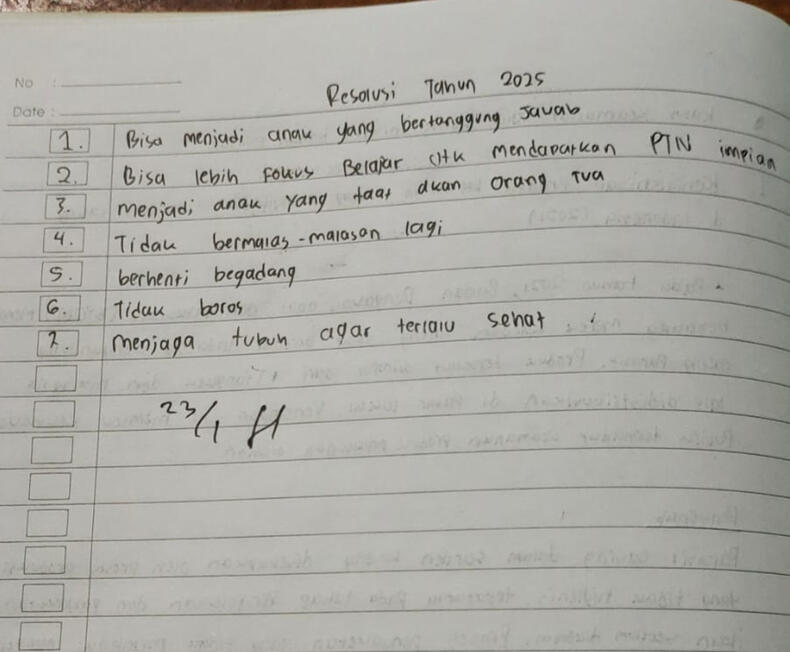 No :
Resolusi Tahun 2025
Date :
1. Bisa menjadi anak yang bertanggung Jawab
2. Bisa lebih Fokus Belajar utk mendapatkan PTN impian
3. menjadi anak yang taat akan orang tua
4. Tidak bermalas-malasan lagi
5. berhenti begadang
6. Tidak boros
7. menjaga tubuh agar terlalu sehat .
23/1